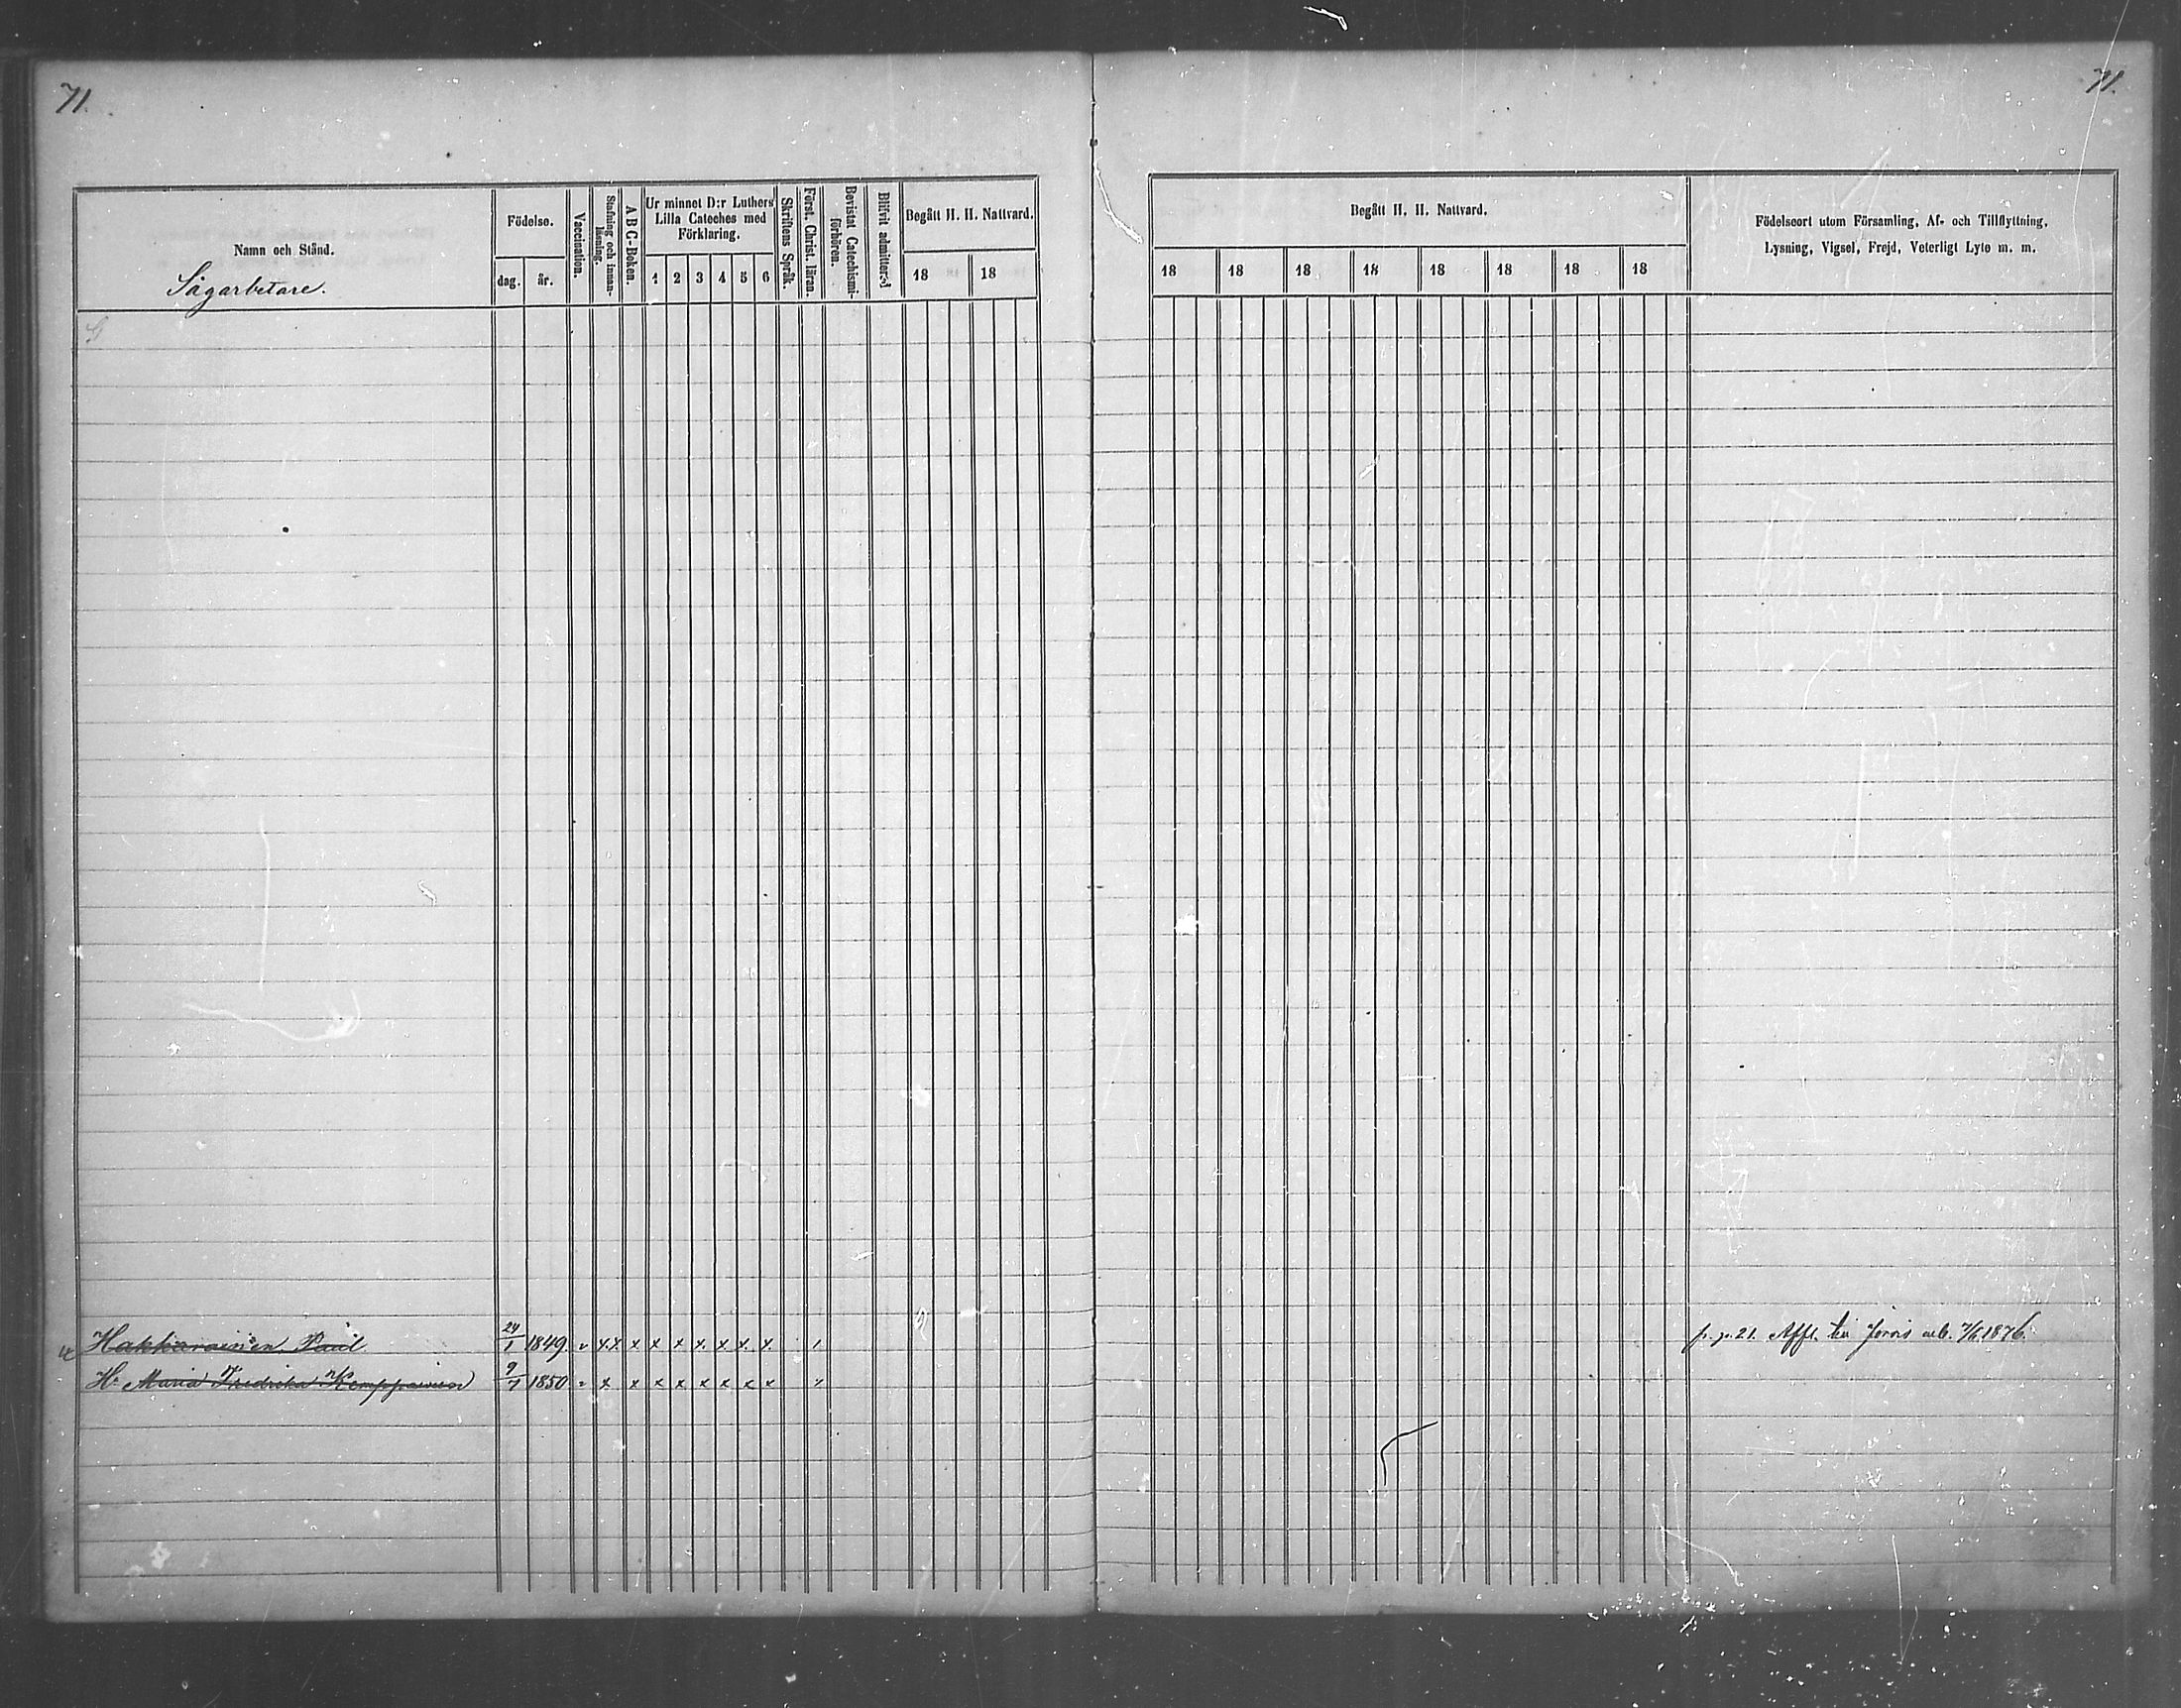 71.
71.
Namn och Stånd.
Sågarbetare.
Födelse.
dag.
år.
Vaccination.
Stafning och innan-
läsning.
A B C-Boken.
Ur minnet D:r Luthers
Lilla Cateches med
Förklaring.
1 2 3 4 5 6
Skriftens Språk.
Först. Christ. läran.
Bevistat Catechismi-
förhören.
Blifvit admitterad
Begått H. H. Nattvard.
18 18
Begått H. H. Nattvard.
18 18 18 18 18 18 18 18
Födelseort utom Församling, Af- och Tillflyttning,
Lysning, Vigsel, Frejd, Veterligt Lyte m. m.
Hakkarainen Paul 24/1 1849 v x.x x x x x. x x. x. 1 Affl. 1876.
H. Maria Fredrika Kemppainen 9/7 1850 x x x x x x x x